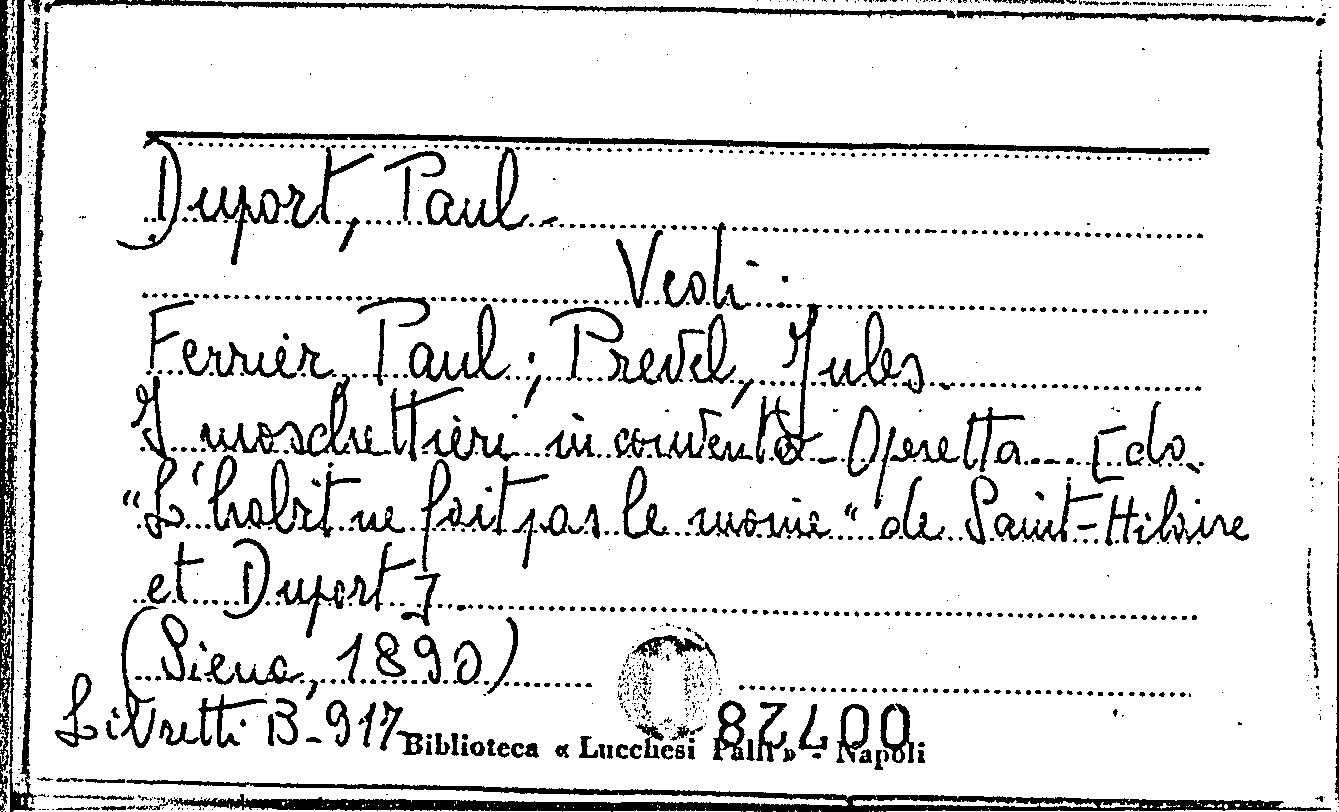 Duport, Paul -
Vedi:
Ferrier, Paul; Prevel, Jules.
I moschettieri in convento - Operetta... [da
"L'habit ne fait pas le moine" de Saint-Hilaire
et Duport]
(Siena, 1890)
Libretti B-917
Biblioteca « Lucchesi Palli » - Napoli
00728